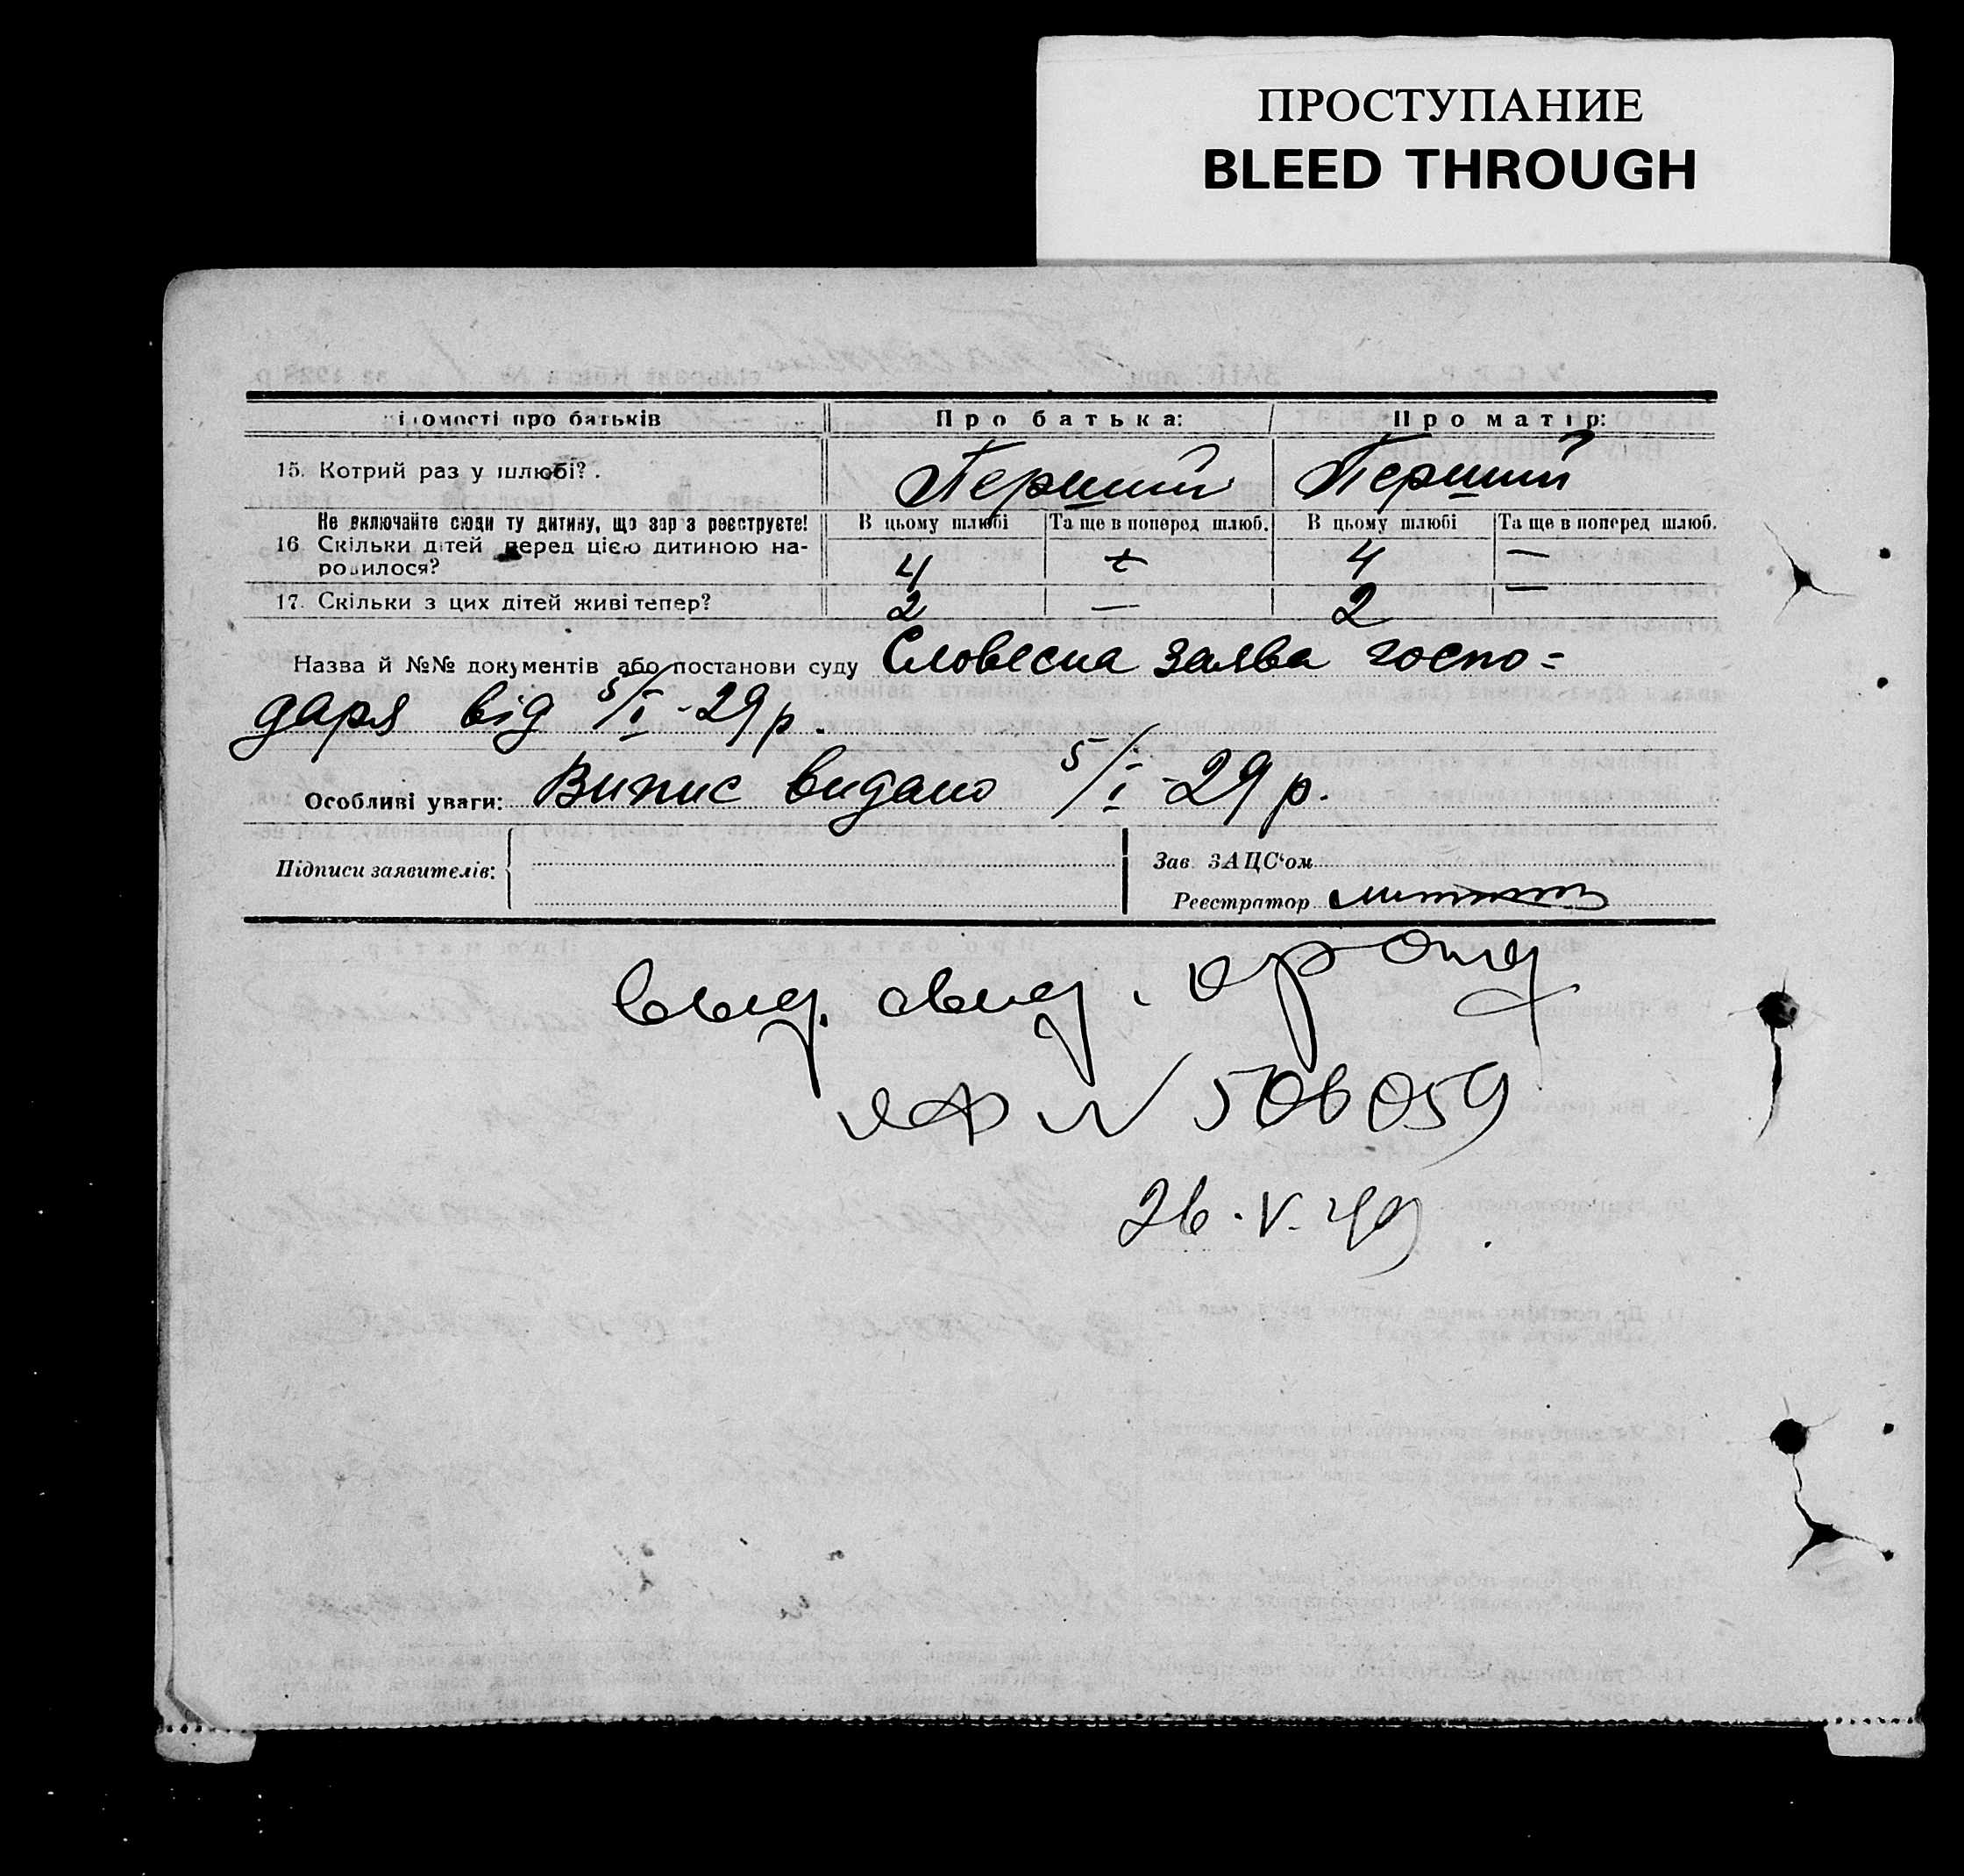 ПРОСТУПАНИЕ
BLEED THROUGH
ідомості про батьків Про батька: Про матір:
15. Котрий раз у шлюбі? . Перший Перший
Не включайте сюди ту дитину, що зараз реєструєте! В цьому шлюбі Та ще в поперед шлюб. В цьому шлюбі Та ще в поперед шлюб.
16 Скільки дітей перед цією дитиною на-
родилося? 4 — 4 —
17. Скільки з цих дітей живі тепер? 2 — 2 —
Назва й №№ документів або постанови суду Словесна заява госпо=
даря від 5/I - 29 р.
Особливі уваги: Випис видано 5/I - 29 р.
Підписи заявителів: Зав. ЗАЦС‘ом
Реєстратор
выд. свид. о рожд
№ 506059
26. V. 49